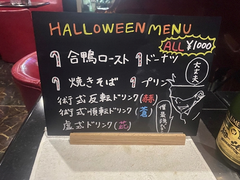 HALLOWEEN MENU
ALL ¥1000
合鴨ロースト
ドーナツ
焼きそば
プリン
術式反転ドリンク(赫)
術式順転ドリンク(蒼)
虚式ドリンク(茈)
大丈夫
僕最強